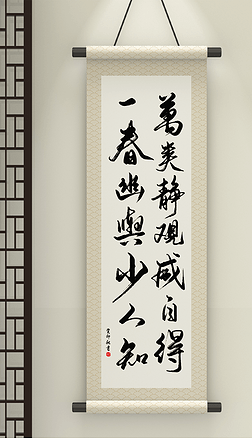 萬类静觀咸自得
一春幽興少人知